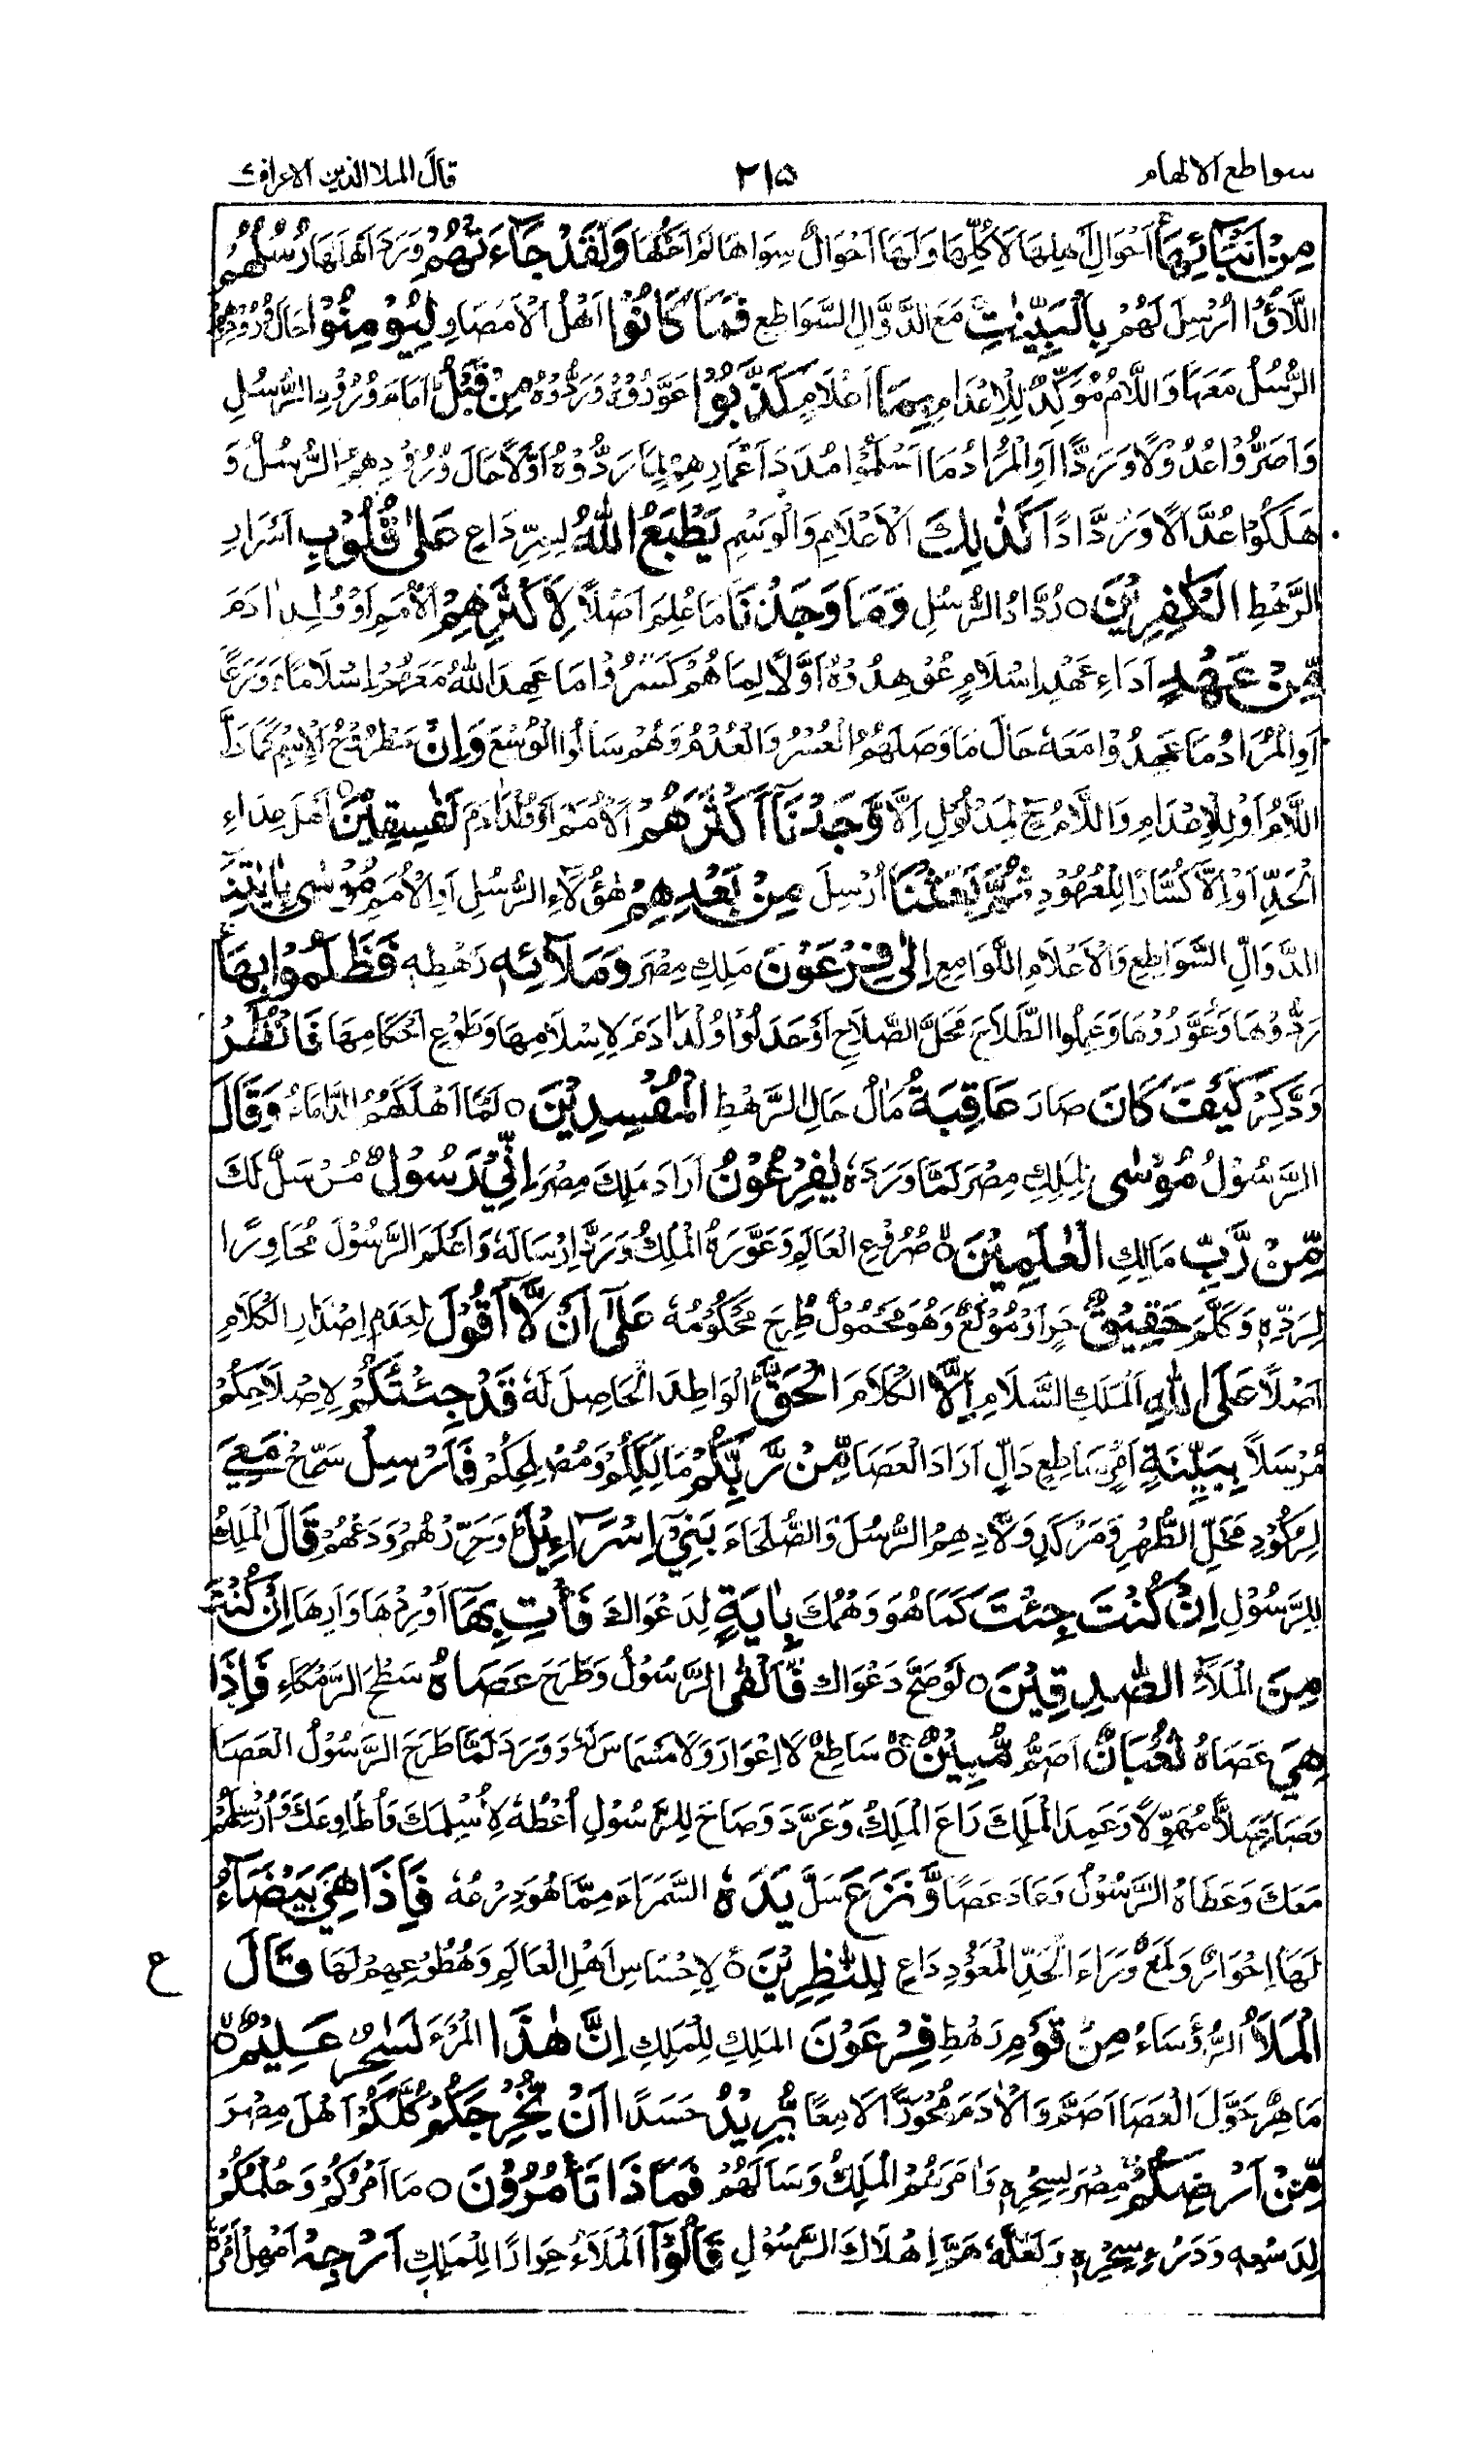 سواطع الالهام ٢١٥ قال الملا الذين الاعراف
مِنْ اَنْبَائِهَا اَحْوَالِ اَهْلِهَا لَا كُلِّهَا وَلَهَا اَحْوَالٌ سِوَاهَا لَمْ اَحْكُهَا وَلَقَدْ جَاءَتْهُمْ وَرَدَ اَهْلَهَا رُسُلُهُمْ
اللَّاؤُا اُرْسِلَ لَهُمْ بِالْبَيِّنٰتِ مَعَ الدَّوَالِّ السَّوَاطِعِ فَمَا كَانُوْا اَهْلُ الْاَمْصَارِ لِيُؤْمِنُوْا حَالَ وُرُوْدِهِمْ
الرُّسُلُ مَعَهَا وَاللَّامُ مُؤَكِّدٌ لِلْاِعْدَامِ بِمَا اَعْلَامٍ كَذَّبُوْا عَوَّرُوْهُ وَرَدُّوْهُ مِنْ قَبْلُ اَمَامَ وُرُوْدِ الرُّسُلِ
وَاَصَرُّوْا عُدُوْلًا وَرَدًّا اَوِ الْمُرَادُ مَا اَسْلَمُوْا مُدَدَ اَعْمَارِهِمْ لِمَا رَدُّوْهُ اَوَّلًا حَالَ وُرُوْدِهِمُ الرُّسُلُ وَ
هَلَكُوْا عُدَّالًا وَرَدَّادًا كَذٰلِكَ الْاَعْلَامِ وَالْوَسْمِ يَطْبَعُ اللّٰهُ لِسِرٍّ دَاعٍ عَلٰى قُلُوْبِ اَسْرَارِ
الرَّهْطِ الْكٰفِرِيْنَ ○ رُدَّادُ الرُّسُلِ وَمَا وَجَدْنَا مَا عُلِمَ اَصْلًا لِاَكْثَرِهِمْ الْاُمَمِ اَوْ وُلْدِ اٰدَمَ
مِّنْ عَهْدٍ اَدَاءِ عَهْدِ اِسْلَامٍ عُوْهِدُوْهُ اَوَّلًا لِمَا هُمْ كَسَرُوْا مَا عَهِدَ اللّٰهُ مَعَهُمْ اِسْلَامًا وَوَرَعًا
اَوِ الْمُرَادُ مَا عَهِدُوْا مَعَهٗ حَالَ مَا وَصَلَهُمُ الْعُسْرُ وَالْعُدْمُ وَهُمْ سَاَلُوا الْوُسْعَ وَاِنْ مَطْرُوْحُ الْاِسْمِ كَمَا دَلَّ
اللَّامُ اَوْ لِلْاِعْدَامِ وَاللَّامُ ح لِمَدْلُوْلِ اِلَّا وَّجَدْنَا اَكْثَرَهُمْ الْاُمَمَ اَوْ وُلْدَ اٰدَمَ لَفٰسِقِيْنَ اَهْلَ عِدَاءِ
الْحَدِّ اَوْ اِلَّا كُسَّارًا لِلْعُهُوْدِ ثُمَّ بَعَثْنَا اُرْسِلَ مِنْ بَعْدِهِمْ هٰؤُلَاءِ الرُّسُلِ اَوِ الْاُمَمِ مُوْسٰى بِاٰيٰتِنَا
الدَّوَالِّ السَّوَاطِعِ وَالْاَعْلَامِ اللَّوَامِعِ اِلٰى فِرْعَوْنَ مَلِكِ مِصْرَ وَمَلَائِهٖ رَهْطِهٖ فَظَلَمُوْا بِهَا
رَدُّوْهَا وَعَوَّرُوْهَا وَعَمِلُوا الطَّلَاحَ مَحَلَّ الصَّلَاحِ اَوْ حَدَلُوْا وُلْدَ اٰدَمَ لِاِسْلَامِهَا وَطَوْعِ اَحْكَامِهَا فَانْظُرْ
وَدَّكِرْ كَيْفَ كَانَ صَارَ عَاقِبَةُ مَاٰلُ حَالِ الرَّهْطِ الْمُفْسِدِيْنَ ○ لَمَّا اَهْلَكَهُمُ الدَّامَاءُ وَقَالَ
الرَّسُوْلُ مُوْسٰى لِمَلِكِ مِصْرَ لَمَّا وَرَدَهٗ يٰفِرْعَوْنُ اَرَادَ مَلِكَ مِصْرَ اِنِّيْ رَسُوْلٌ مُرْسَلٌ لَكَ
مِّنْ رَّبِّ مَالِكِ الْعٰلَمِيْنَ ○ صُرُوْعِ الْعَالَمِ وَعَوَّرَهُ الْمَلِكُ وَرَدَّ اِرْسَالَهٗ وَاَعْلَمَ الرَّسُوْلُ مُحَاوِرًا
لِرَدِّهٖ وَكَلَّمَ حَقِيْقٌ حَرٍ اَوْ مُوْلَعٌ وَهُوَ مَحْمُوْلٌ طُرِحَ مَحْكُوْمُهٗ عَلٰى اَنْ لَّا اَقُوْلَ لِعَدَمِ اِصْدَارِ الْكَلَامِ
اَصْلًا عَلَى اللّٰهِ الْمَلِكِ السَّلَامِ اِلَّا الْكَلَامَ الْحَقَّ الْوَاطِدَ الْحَاصِلَ لَهٗ قَدْ جِئْتُكُمْ لِاِصْلَاحِكُمْ
مُرْسَلًا بِبَيِّنَةٍ اَمْرٍ سَاطِعٍ دَالٍّ اَرَادَ الْعَصَا مِّنْ رَّبِّكُمْ مَالِكِكُمْ وَمُصْلِحِكُمْ فَاَرْسِلْ سَمِّحْ مَعِيَ
لِرُكُوْدِ مَحَلِّ الطُّهْرِ وَمَرْكَدِ وَلَّادِهِمُ الرُّسُلِ وَالصُّلَحَاءِ بَنِيْ اِسْرَاءِيْلَ وَحَرِّرْهُمْ وَدَعْهُمْ قَالَ الْمَلِكُ
لِلرَّسُوْلِ اِنْ كُنْتَ جِئْتَ كَمَا هُوَ وَهْمُكَ بِاٰيَةٍ لِدَعْوَاكَ فَاْتِ بِهَا اَوْرِدْهَا وَاَرِهَا اِنْ كُنْتَ
مِنَ الْمَلَاءِ الصّٰدِقِيْنَ ○ لَوْ صَحَّ دَعْوَاكَ فَاَلْقٰى الرَّسُوْلُ وَطَرَحَ عَصَاهُ سَطْحَ الرَّمْكَاءِ فَاِذَا
هِيَ عَصَاهُ ثُعْبَانٌ اَصَمُّ مُّبِيْنٌ ○ سَاطِعٌ لَا اِعْوَارَ وَلَا مِسَاسَ لَهٗ وَوَرَدَ لَمَّا طَرَحَ الرَّسُوْلُ الْعَصَا
وَصَارَ صِلًّا مُهَوِّلًا وَعَمِدَ الْمَلِكَ رَاعَ الْمَلِكُ وَعَرَّدَ وَصَاحَ لِلرَّسُوْلِ اُعْطُهٗ لِاُسْلِمَكَ وَاُطَاوِعَكَ وَاُرْسِلَهُمْ
مَعَكَ وَعَطَاهُ الرَّسُوْلُ وَعَادَ عَصًا وَّنَزَعَ سَلَّ يَدَهٗ السَّمْرَاءَ مِمَّا هُوَ دِرْعُهٗ فَاِذَا هِيَ بَيْضَاءُ
لَهَا اِحْوِرَارٌ وَلَمْعٌ وَرَاءَ الْحَدِّ الْمَعْهُوْدِ دَاعٍ لِلنّٰظِرِيْنَ ○ لِاِحْسَاسِ اَهْلِ الْعَالَمِ وَهُطُوْعِهِمْ لَهَا قَالَ
ع
الْمَلَاُ الرُّؤَسَاءُ مِنْ قَوْمِ رَهْطِ فِرْعَوْنَ الْمَلِكِ لِلْمَلِكِ اِنَّ هٰذَا الْمَرْءَ لَسٰحِرٌ عَلِيْمٌ ○
مَاهِرٌ حَوَّلَ الْعَصَا اَصَمَّ وَالْاٰدَمَ مُحْوَرًّا لَامِعًا يُّرِيْدُ حَسَدًا اَنْ يُّخْرِجَكُمْ كُلَّكُمْ اَهْلَ مِصْرَ
مِّنْ اَرْضِكُمْ مِصْرَ لِسِحْرِهٖ وَاٰمَرَهُمُ الْمَلِكُ وَسَاَلَهُمْ فَمَاذَا تَاْمُرُوْنَ ○ مَا اَمْرُكُمْ وَحُكْمُكُمْ
لِدَسْعِهٖ وَدَرْءِ سِحْرِهٖ وَلَعَلَّهٗ هَمَّ اِهْلَاكَ الرَّسُوْلِ قَالُوْا الْمَلَاءُ حِوَارًا لِلْمَلِكِ اَرْجِهْ اَمْهِلْ اَمْرَهٗ